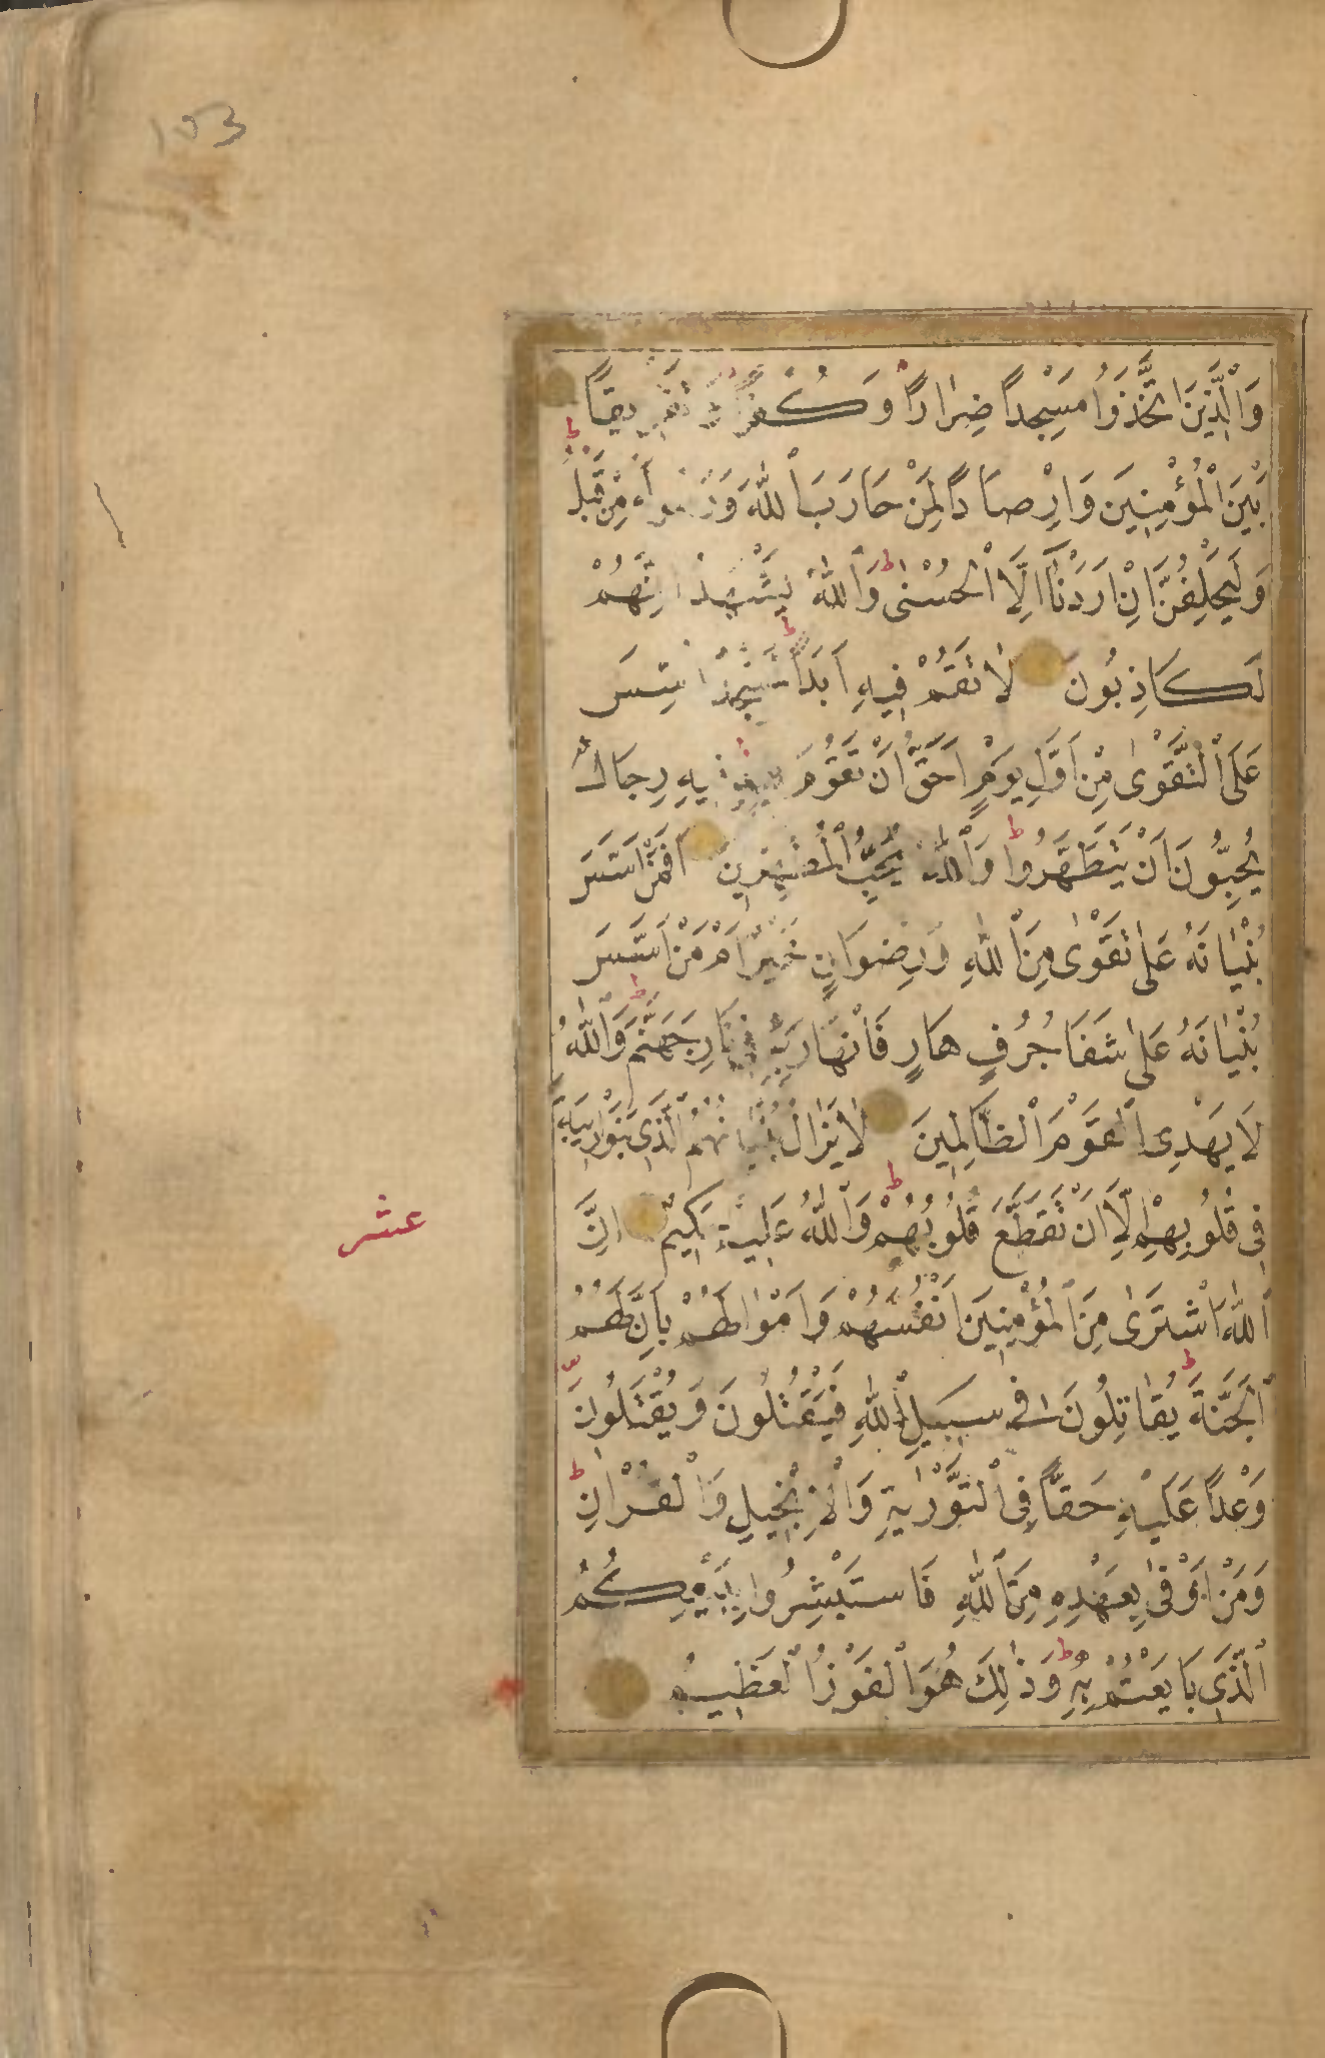 103
وَالَّذِينَ اتَّخَذُوا مَسْجِداً ضِرَاراً وَكُفْراً وَتَفْرِيقاً
بَيْنَ الْمُؤْمِنِينَ وَاِرْصَاداً لِمَنْ حَارَبَ اللّٰهَ وَرَسُولَهُ مِنْ قَبْلُ ط
وَلَيَحْلِفُنَّ اِنْ اَرَدْنَا اِلَّا الْحُسْنٰى ط وَاللّٰهُ يَشْهَدُ اِنَّهُمْ
لَكَاذِبُونَ لَا تَقُمْ فِيهِ اَبَداً ط لَمَسْجِدٌ اُسِّسَ
عَلَى التَّقْوٰى مِنْ اَوَّلِ يَوْمٍ اَحَقُّ اَنْ تَقُومَ فِيهِ فِيهِ رِجَالٌ
يُحِبُّونَ اَنْ يَتَطَهَّرُوا ط وَاللّٰهُ يُحِبُّ الْمُطَّهِّرِينَ اَفَمَنْ اَسَّسَ
بُنْيَانَهُ عَلٰى تَقْوٰى مِنَ اللّٰهِ وَرِضْوَانٍ خَيْرٌ اَمْ مَنْ اَسَّسَ
بُنْيَانَهُ عَلٰى شَفَا جُرُفٍ هَارٍ فَانْهَارَ بِهِ فِي نَارِ جَهَنَّمَ ط وَاللّٰهُ
لَا يَهْدِى الْقَوْمَ الظَّالِمِينَ لَا يَزَالُ بُنْيَانُهُمُ الَّذِى بَنَوْا رِيبَةً
فِى قُلُوبِهِمْ اِلَّا اَنْ تَقَطَّعَ قُلُوبُهُمْ ط وَاللّٰهُ عَلِيمٌ حَكِيمٌ اِنَّ
عشر
اللّٰهَ اشْتَرٰى مِنَ الْمُؤْمِنِينَ اَنْفُسَهُمْ وَاَمْوَالَهُمْ بِاَنَّ لَهُمُ
الْجَنَّةَ ط يُقَاتِلُونَ فِى سَبِيلِ اللّٰهِ فَيَقْتُلُونَ وَيُقْتَلُونَ
وَعْداً عَلَيْهِ حَقاًّ فِى التَّوْرٰيةِ وَالْاِنْجِيلِ وَالْقُرْاٰنِ ط
وَمَنْ اَوْفٰى بِعَهْدِهِ مِنَ اللّٰهِ فَاسْتَبْشِرُوا بِبَيْعِكُمُ
الَّذِى بَايَعْتُمْ بِهِ ط وَذٰلِكَ هُوَ الْفَوْزُ الْعَظِيمُ